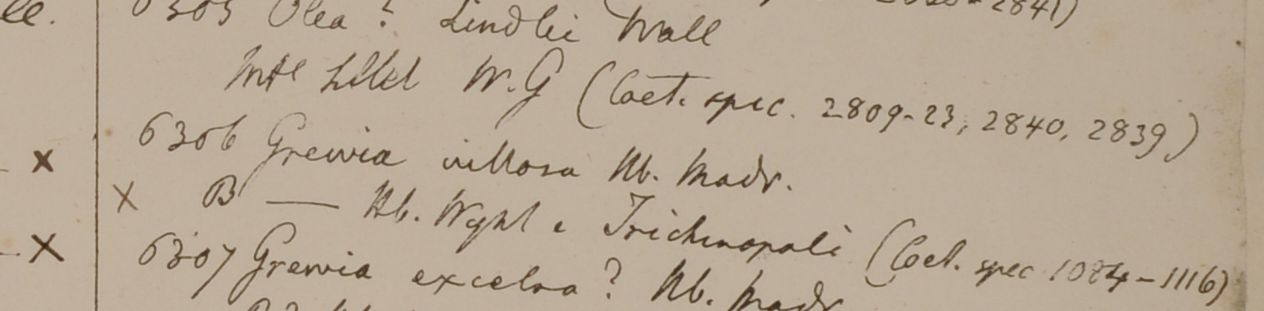 6305 Olea? Lindlei Wall 2841)
W.G (Coet. spec. 2809-23, 2840, 2839)
6306 Grewia villosa Hb. Madr.
x
x B — Hb. Wight e Trichinopoli (Coet. spec 1084-1116)
x 6307 Grewia excelsa? Hb. Madr